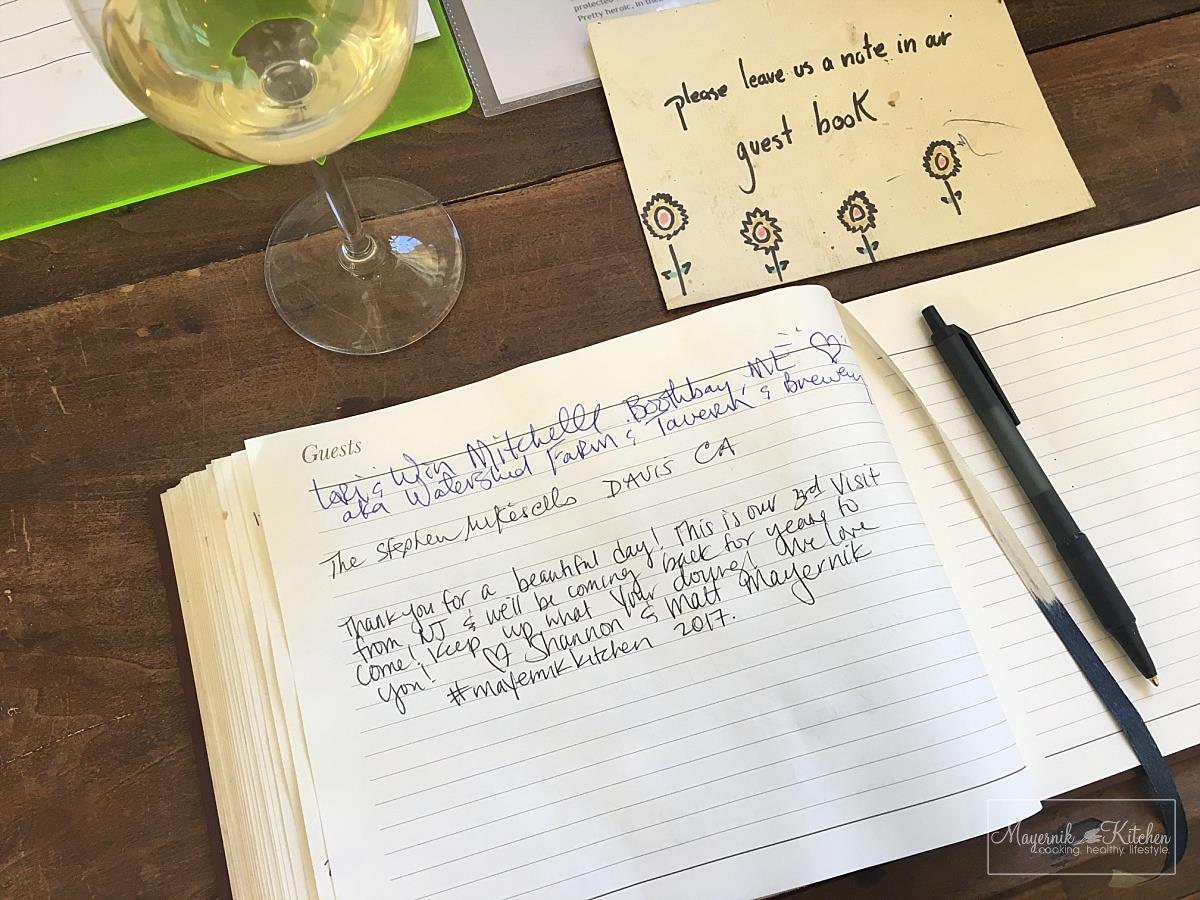 protected
Pretty heroic, in the
please leave us a note in our
guest book
Guests
Mitchell Boothbay, ME
aka Watershed Farm & Tavern & Brewery
The Stephen Mikesells DAVIS CA
Thank you for a beautiful day! This is our 3rd visit
from NJ & we'll be coming back for years to
come! Keep up what your doing! We love
you! Shannon & Matt Mayernik
#mayernikkitchen 2017.
Mayernik Kitchen
cooking. healthy. lifestyle.